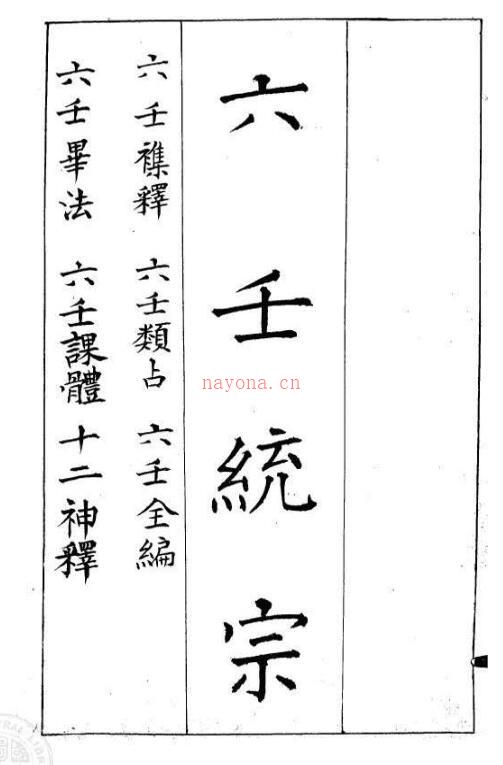 六壬統宗
六壬襍釋 六壬類占 六壬全編
六壬畢法 六壬課體 十二神釋
nayona.cn